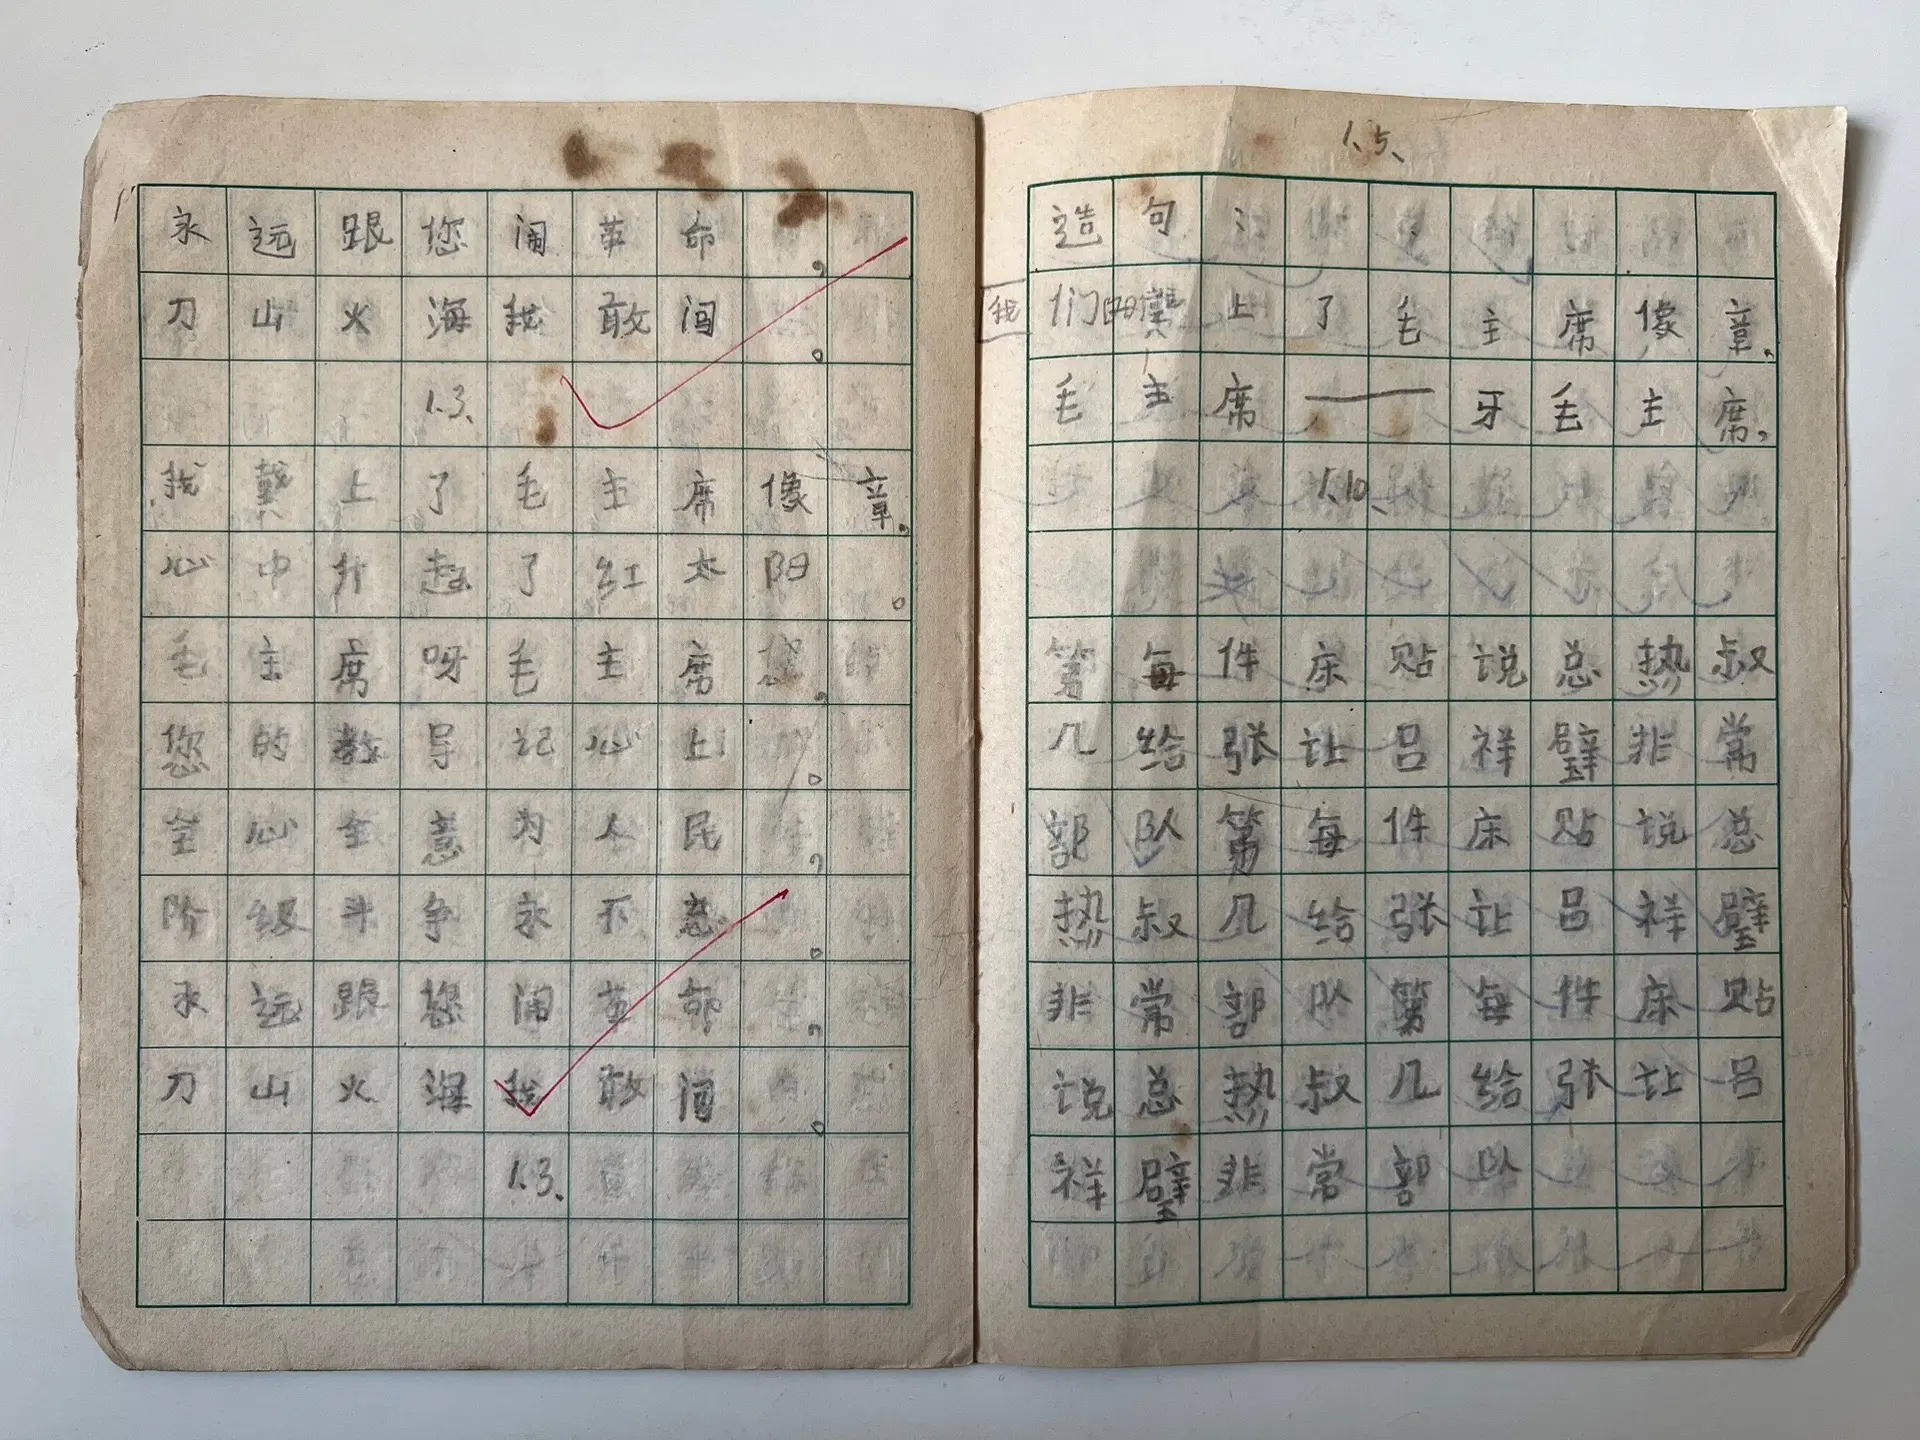 永远跟您闹革命，
刀山火海我敢闯。
1.3、
我戴上了毛主席像章，
心中升起了红太阳。
毛主席呀毛主席您，
您的教导记心上。
全心全意为人民，
阶级斗争永不忘。
永远跟您闹革命，
刀山火海我敢闯。
1.3、
1.5、
造句：
我们戴上了毛主席像章.
毛主席——牙毛主席,
1.10、
第每件床贴说总热叔
几给张让吕祥璧非常
部队第每件床贴说总
热叔几给张让吕祥璧
非常部队第每件床贴
说总热叔几给张让吕
祥璧非常部队